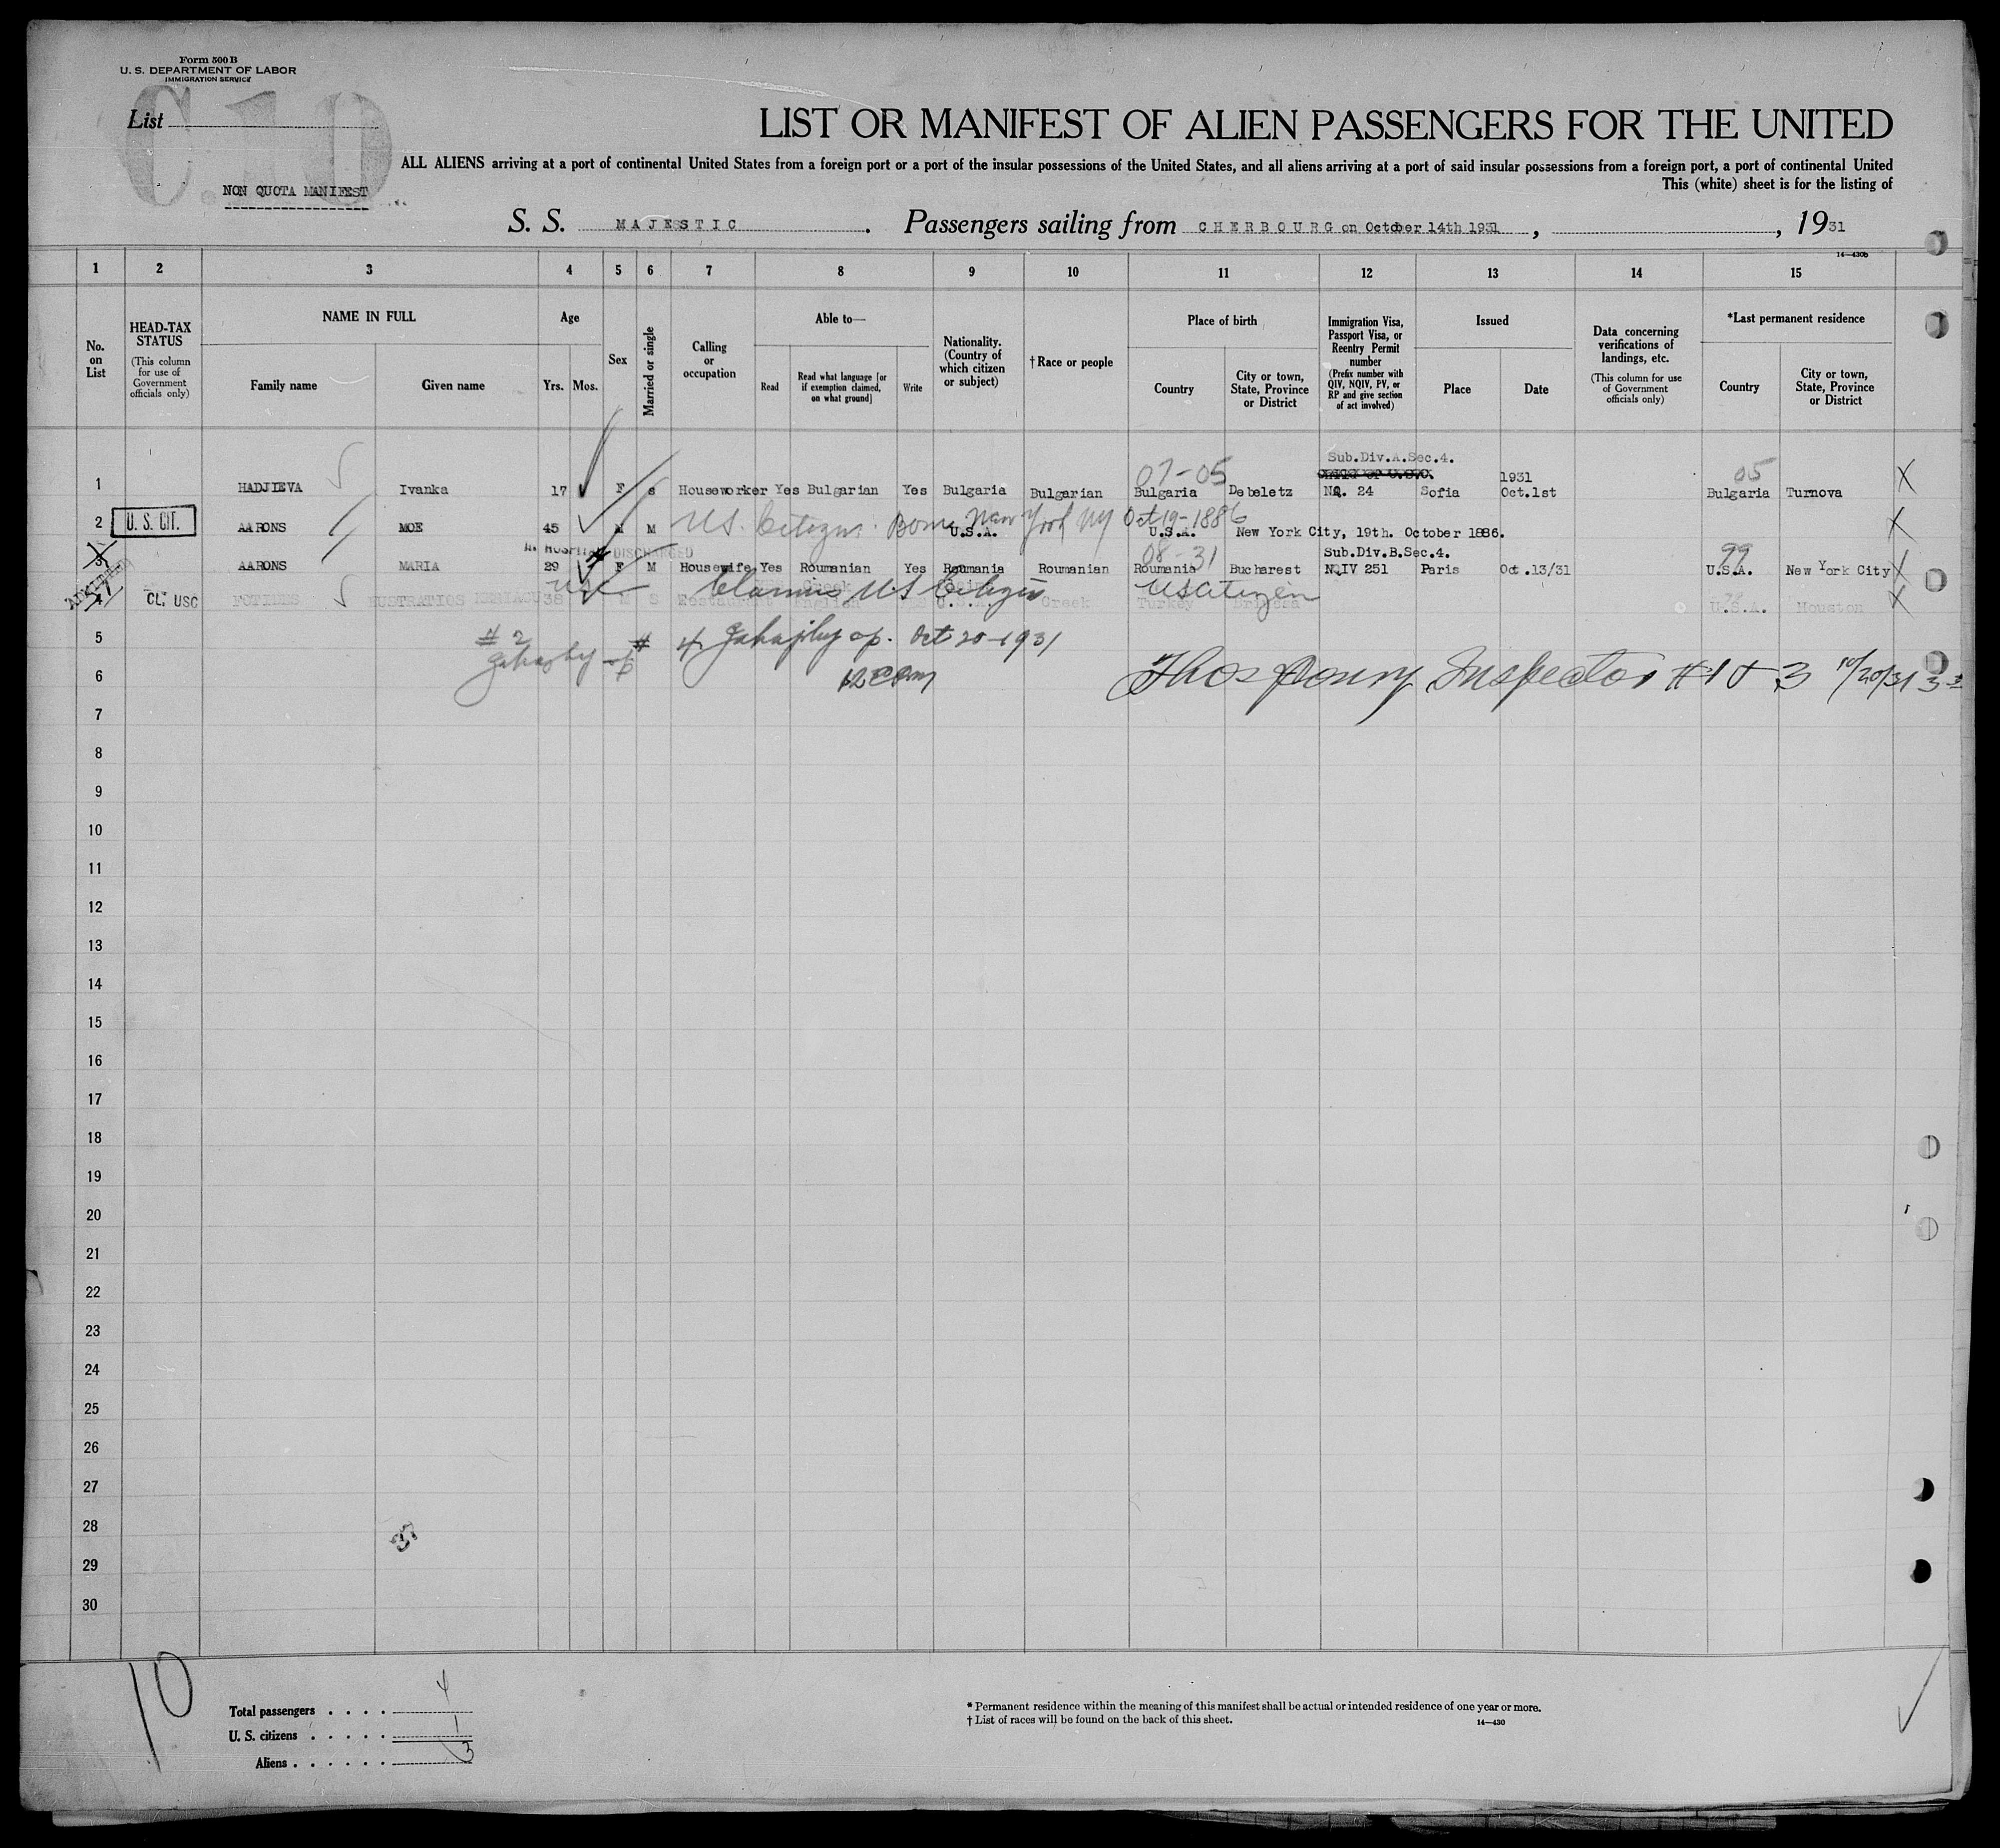 Form 500 B
U. S. DEPARTMENT OF LABOR
IMMIGRATION SERVICE
C.10
List
LIST OR MANIFEST OF ALIEN PASSENGERS FOR THE UNITED
ALL ALIENS arriving at a port of continental United States from a foreign port or a port of the insular possessions of the United States, and all aliens arriving at a port of said insular possessions from a foreign port, a port of continental United
This (white) sheet is for the listing of
NON QUOTA MANIFEST
S. S. MAJESTIC. Passengers sailing from CHERBOURG on October 14th 1931, , 1931
14—430b
1 2 3 4 5 6 7 8 9 10 11 12 13 14 15
No. on List
HEAD-TAX STATUS
(This column for use of Government officials only)
NAME IN FULL
Family name
Given name
Age
Yrs. Mos.
Sex
Married or single
Calling or occupation
Able to—
Read
Read what language [or if exemption claimed, on what ground]
Write
Nationality. (Country of which citizen or subject)
† Race or people
Place of birth
Country
City or town, State, Province or District
Immigration Visa, Passport Visa, or Reentry Permit number
(Prefix number with QIV, NQIV, PV, or RP and give section of act involved)
Issued
Place
Date
Data concerning verifications of landings, etc.
(This column for use of Government officials only)
*Last permanent residence
Country
City or town, State, Province or District
07-05 Sub.Div.A.Sec.4. 1931 05
1 HADJIEVA Ivanka 17 F S Houseworker Yes Bulgarian Yes Bulgaria Bulgarian Bulgaria Debeletz NQ. 24 Sofia Oct.1st Bulgaria Turnova X
US. Citizen. Born New York NY Oct 19-1886
2 U. S. CIT. AARONS MOE 45 M M U.S.A. U.S.A. New York City, 19th. October 1886. X
IN HOSPITAL DISCHARGED 08-31 Sub.Div.B.Sec.4. 99
3 AARONS MARIA 29 F M Housewife Yes Roumanian Yes Roumania Roumanian Roumania Bucharest NQIV 251 Paris Oct.13/31 U.S.A. New York City X
USC Claims US Citizen US Citizen
4 CL. USC FOTINES EUSTRATIOS 38 M S Restaurant English U.S.A. Greek Turkey U.S.A. Houston X
5 # 2 # 4 op. Oct 20-1931
6 12 Pm Thos Inspector #1 & 3 10/20/31
7
8
9
10
11
12
13
14
15
16
17
18
19
20
21
22
23
24
25
26
27
28
29
30
10
Total passengers . . . . 4
U. S. citizens . . . . . 1
Aliens . . . . . . 3
* Permanent residence within the meaning of this manifest shall be actual or intended residence of one year or more.
† List of races will be found on the back of this sheet.
14—430